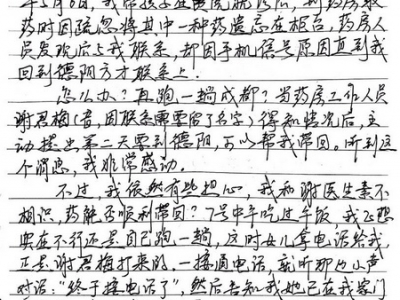 年5月6日，我带孩子在医院就诊后，到药房取
药时因疏忽将其中一种药遗忘在柜台，药房人
员发现后与我联系，却因手机信号原因直到我
回到德阳方才联系上。
怎么办？再跑一趟成都？当药房工作人员
谢君梅（音，因联系需要留了名字）得知情况后，主
动提出第二天要到德阳，可以帮我带回。听到这
个消息，我非常感动。
不过，我依然有些担心，我和谢医生素不
相识，药能否顺利带回？7号中午吃过午饭，我正想
实在不行还是自己跑一趟，这时女儿拿电话给我
正是谢君梅打来的。一接通电话，就听那边小声
对话："终于接电话了"，然后告知我她已在我家门